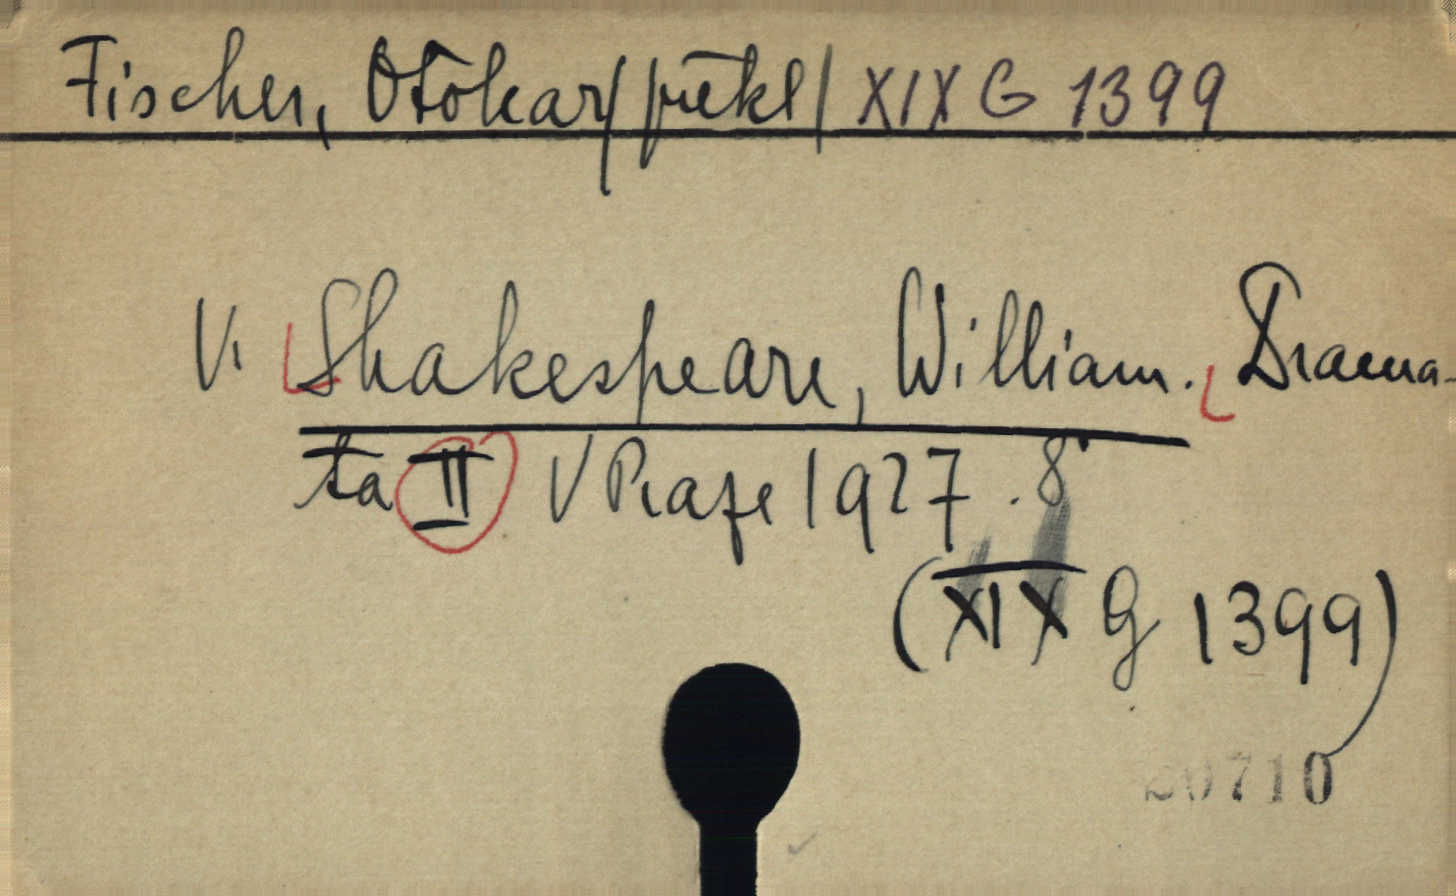 Fischer, Otokar / překl / XIX G 1399
V. Shakespeare, William. Drama-
ta II V Praze 1927. 8°
(XIX G 1399)
20710